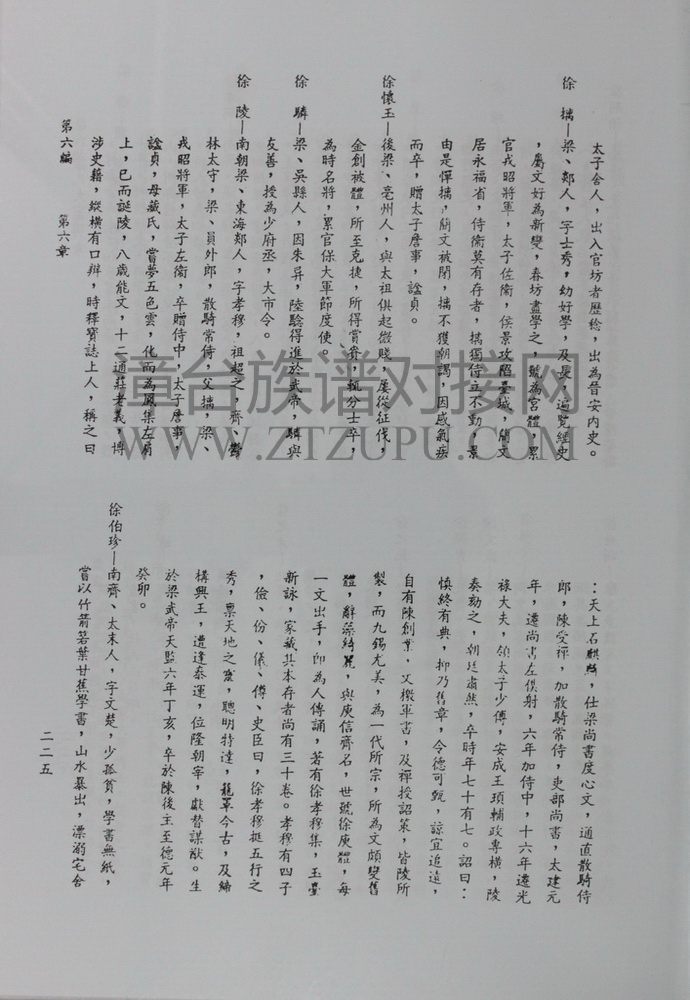 太子舍人，出入宮坊者歷稔，出為晉安內史。
徐　摛—梁、郯人，字士秀，幼好學，及長，遍覽經史
，屬文好為新變，春坊盡學之，號為宮體，累
官戎昭將軍，太子左衛，侯景攻陷臺城，簡文
居永福省，侍衛莫有存者，摛獨侍立不動，景
由是憚摛，簡文被閉，摛不獲朝謁，因感氣疾
而卒，贈太子詹事，諡貞。
徐懷玉—後梁、亳州人，與太祖俱起微賤，屢從征伐，
金創被體，所至克捷，所得賞賚，輒分士卒，
為時名將，累官保大軍節度使。
徐　驎—梁、吳縣人，因朱异，陸驗得進於武帝，驎與
友善，授為少府丞，大市令。
徐　陵—南朝梁、東海郯人，字孝穆，祖超之，齊、鬱
林太守，梁、員外郎，散騎常侍，父摛，梁、
戎昭將軍，太子左衛，卒贈侍中，太子詹事，
諡貞，母臧氏，嘗夢五色雲，化而為鳳集左肩
上，已而誕陵，八歲能文，十二通莊老義，博
涉史籍，縱橫有口辯，時釋寶誌上人，稱之曰
第六編　第六章
：天上石麒麟，仕梁尚書度心文，通直散騎侍
郎，陳受禪，加散騎常侍，吏部尚書，太建元
年，遷尚書左僕射，六年加侍中，十六年遷光
祿大夫，領太子少傅，安成王頊輔政專橫，陵
奏劾之，朝廷肅然，卒時年七十有七。詔曰：
慎終有典，抑乃舊章，令德可甄，諒宜追遠，
自有陳創業，文檄軍書，及禪授詔策，皆陵所
製，而九錫尤美，為一代所宗，所為文頗變舊
體，辭藻綺麗，與庾信齊名，世號徐庾體，每
一文出手，即為人傳誦，著有徐孝穆集，玉臺
新詠，家藏其本存者尚有三十卷。孝穆有四子
，儉、份、儀、僔、史臣曰，徐孝穆挺五行之
秀，稟天地之靈，聰明特達，籠罩今古，及締
構興王，遭逢泰運，位隆朝宰，獻替謀猷。生
於梁武帝天監六年丁亥，卒於陳後主至德元年
癸卯。
徐伯珍—南齊、太末人，字文楚，少孤貧，學書無紙，
嘗以竹箭箬葉甘蕉學書，山水暴出，漂溺宅舍
二二五
童台族谱对接网
WWW.ZTZUPU.COM